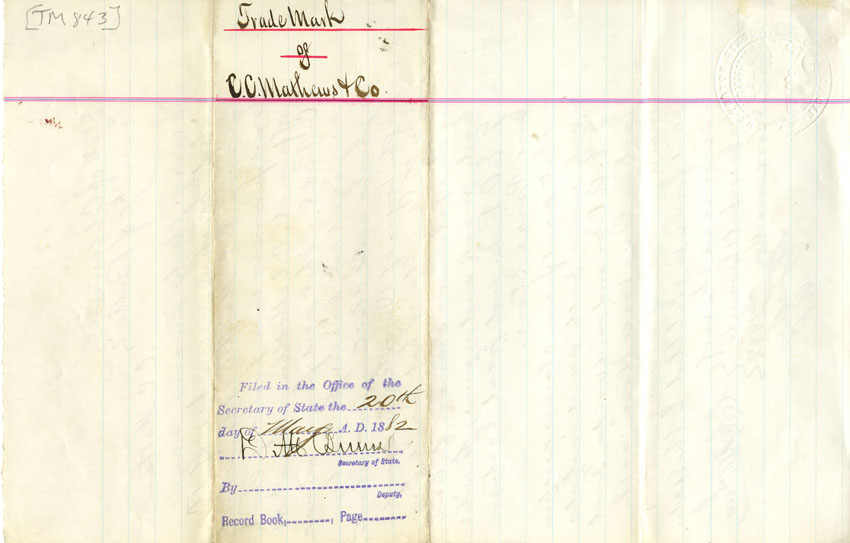 [TM 843]
Trade Mark
of
C.C. Mathews & Co.
Filed in the Office of the
Secretary of State the 20th
day of May A. D. 1882
Secretary of State.
By
Deputy.
Record Book, , Page